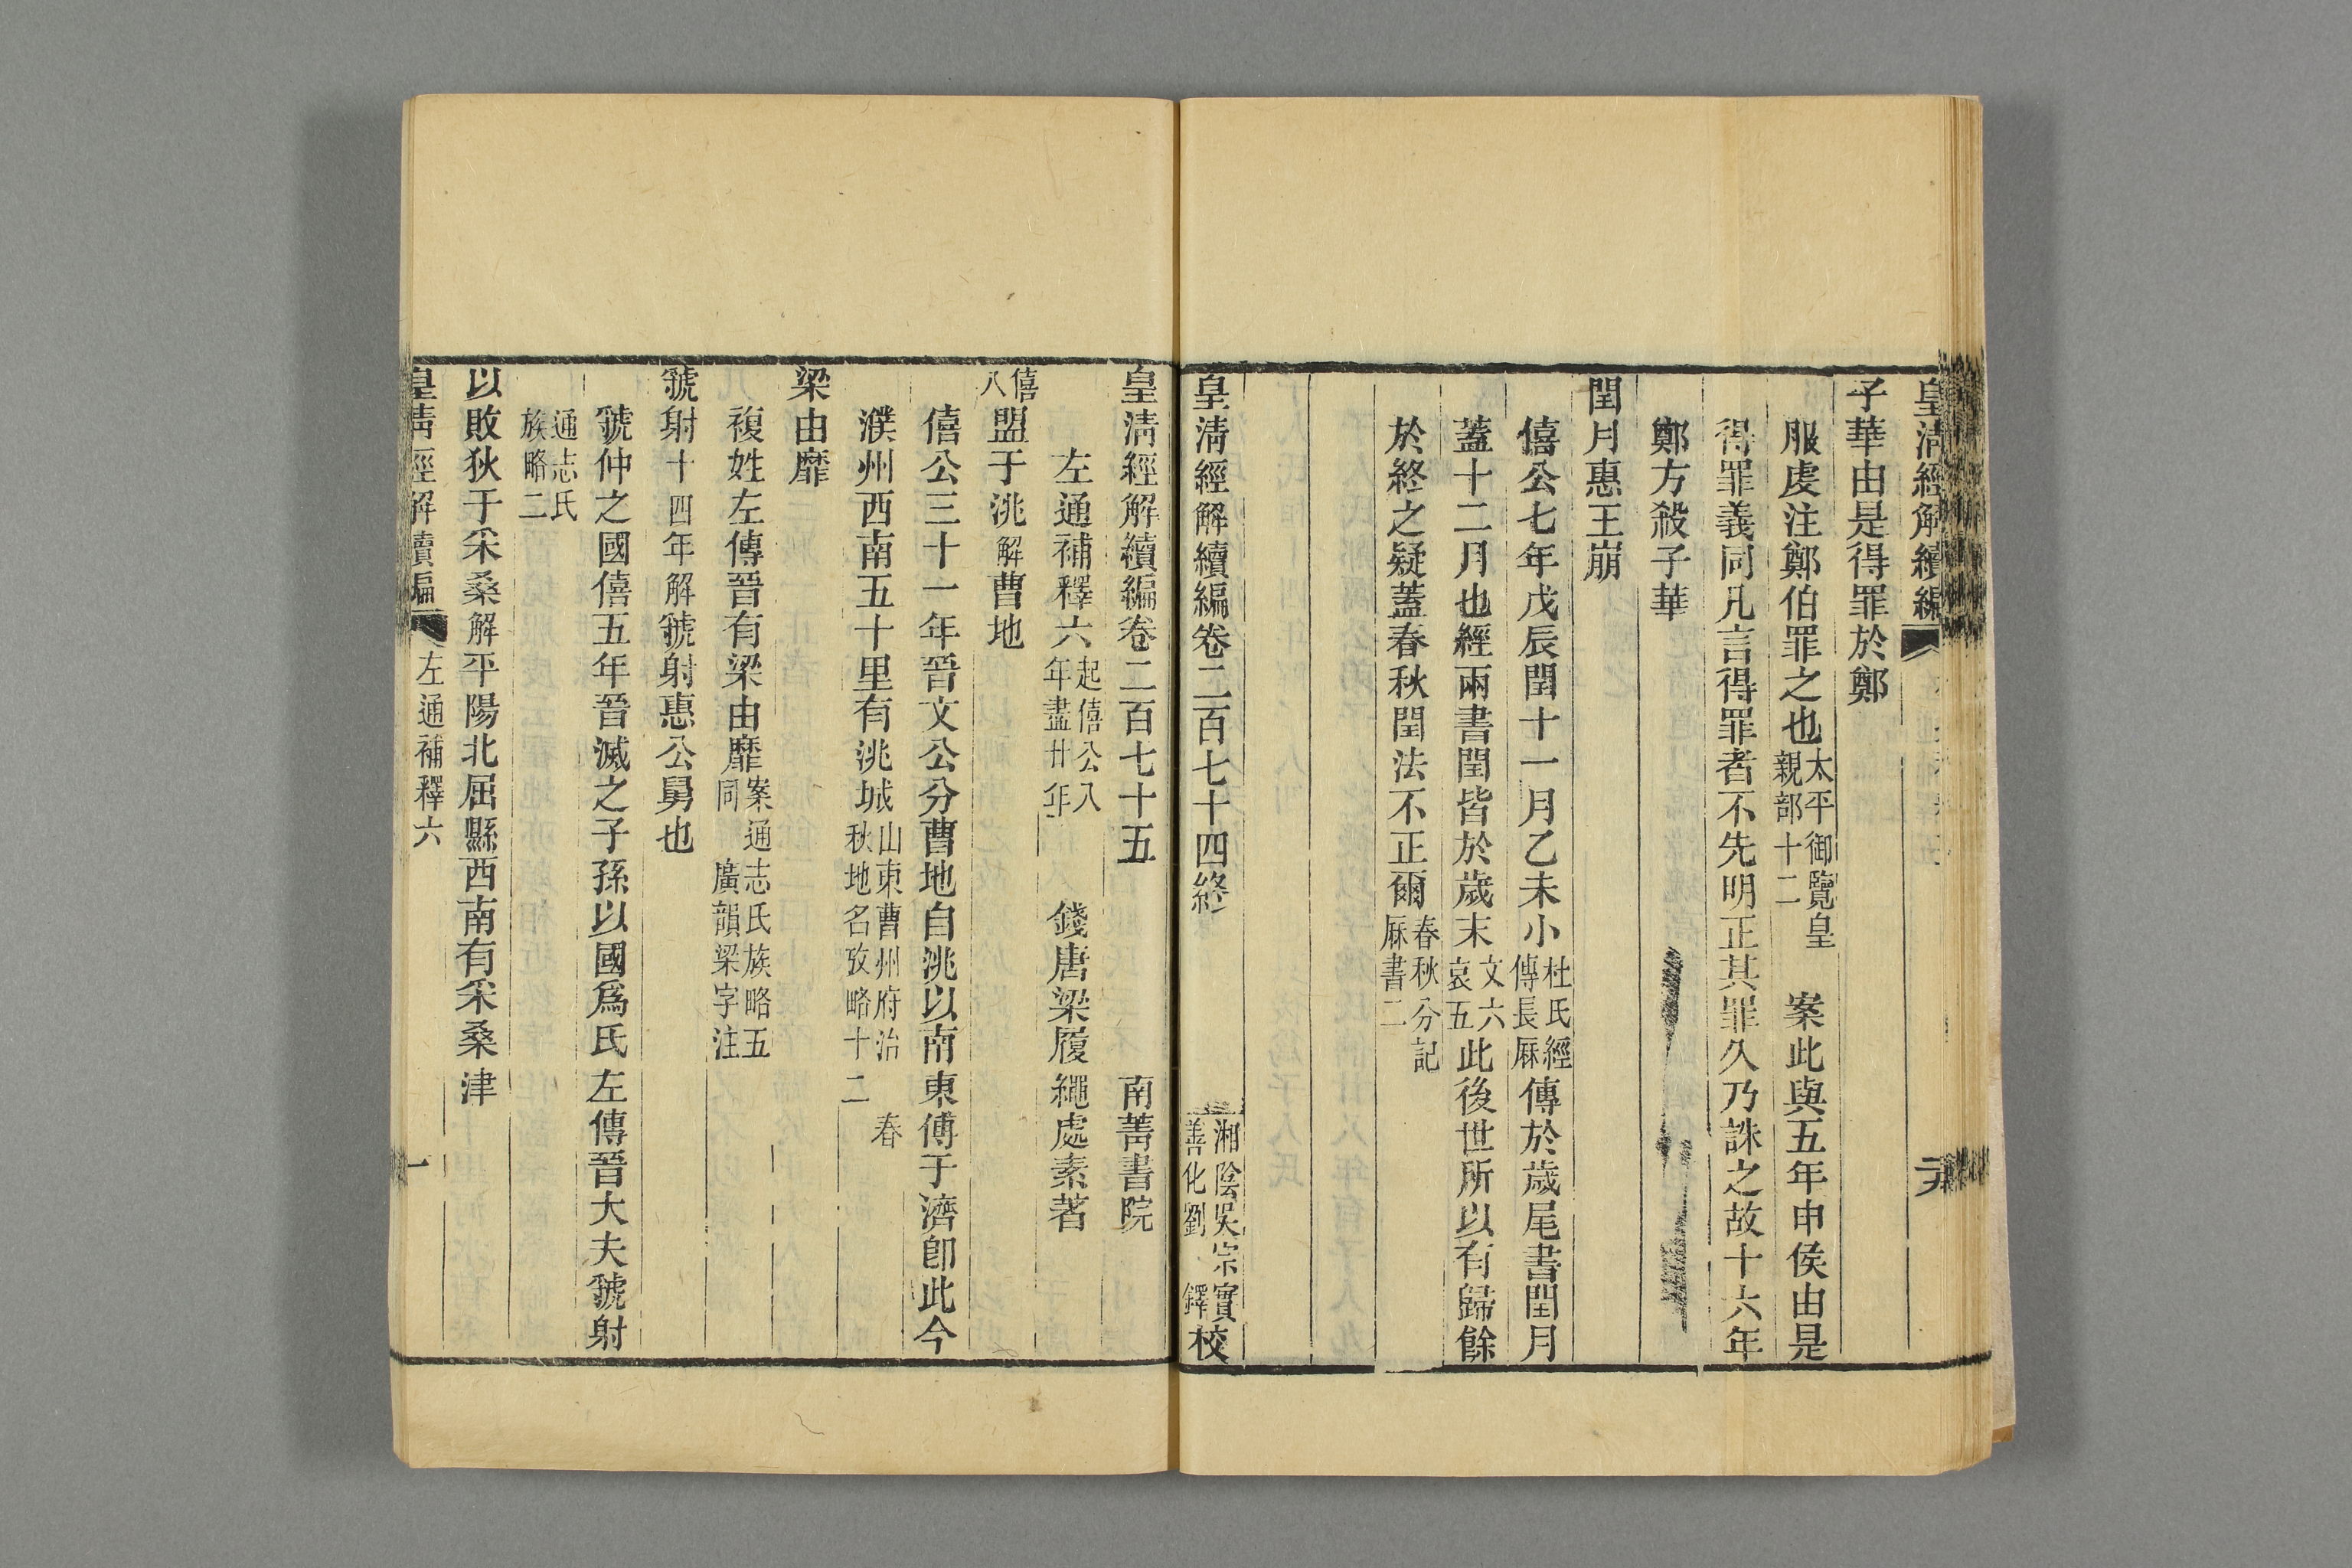 皇清經解續編
子華由是得罪於鄭
服虔注鄭伯罪之也太平御覽皇親部十二案此與五年申侯由是
得罪義同凡言得罪者不先明正其罪久乃誅之故十六年
鄭方殺子華
閏月惠王崩
僖公七年戊辰閏十一月乙未小杜氏經傳長厤傳於歲尾書閏月
蓋十二月也經兩書閏皆於歲末文六哀五此後世所以有歸餘
於終之疑蓋春秋閏法不正爾春秋分記厤書二
皇清經解續編卷二百七十四終
湘陰吳宗實善化劉鐸校
皇清經解續編卷二百七十五 南菁書院
左通補釋六起僖公八年盡卄年 錢唐梁履繩處素著
僖八盟于洮解曹地
僖公三十一年晉文公分曹地自洮以南東傅于濟卽此今
濮州西南五十里有洮城山東曹州府治春秋地名攷略十二
梁由靡
複姓左傳晉有梁由靡案通志氏族略五同廣韻梁字注
虢射十四年解虢射惠公舅也
虢仲之國僖五年晉滅之子孫以國爲氏左傳晉大夫虢射
通志氏族略二
以敗狄于采桑解平陽北屈縣西南有采桑津
皇清經解續編 左通補釋六 一